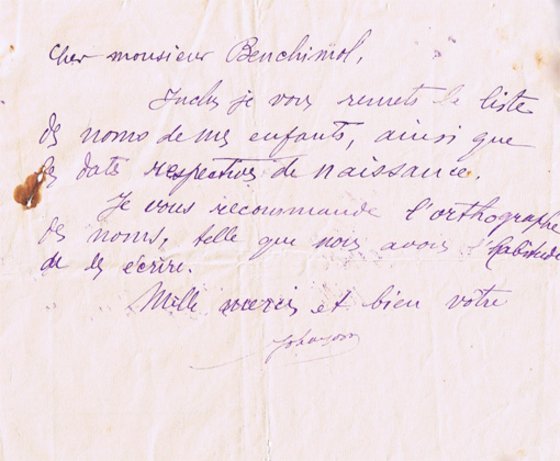 Cher monsieur Benchimol,
Inclus je vous remets la liste
des noms de mes enfants, ainsi que
les dates respectives de naissance.
Je vous recommande l'orthographe
des noms, telle que nous avons l'habitude
de les écrire.
Mille mercis et bien votre